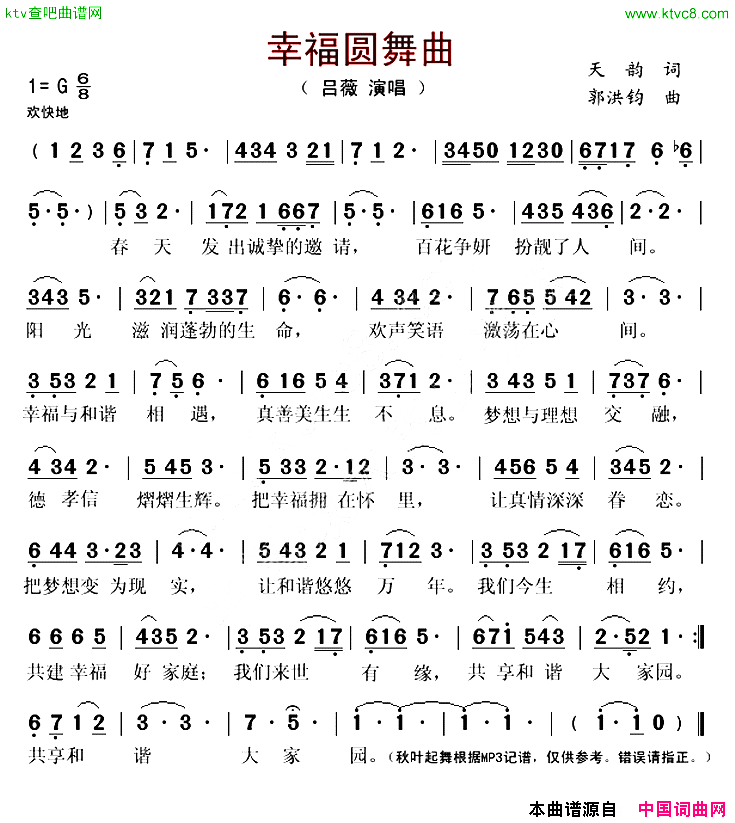 ktv查吧曲谱网 www.ktvc8.com
幸福圆舞曲
1=G 6/8 （吕薇 演唱） 天韵 词
欢快地 郭洪钧 曲
( 1 2 3 6 | 7 1 5· | 434 3 21 | 7 1 2· | 3450 1230 | 6717 6 ♭6 |
5·5· ) | 5 3 2· | 172 1 667 | 5·5· | 6165· | 435 436 | 2·2· |
春 天 发 出诚挚的邀 请， 百花争妍 扮靓了人 间。
343 5· | 321 7 337 | 6·6· | 4 34 2· | 7 65 5 42 | 3·3· |
阳 光 滋 润蓬勃的生 命， 欢声笑语 激荡在心 间。
3 53 2 1 | 7 5 6· | 6 16 5 4 | 371 2· | 3 43 5 1 | 737 6· |
幸福与和谐 相 遇， 真善美生生 不 息。 梦想与理想 交 融，
4 34 2· | 5 45 3· | 5 33 2·12 | 3·3· | 456 5 4 | 345 2· |
德 孝信 熠熠生辉。 把幸福拥 在怀 里， 让真情深深 眷 恋。
6 44 3·23 | 4·4· | 5 43 2 1 | 712 3· | 3 53 2 17 | 616 5· |
把梦想变 为现 实， 让和谐悠悠 万 年。 我们今生 相 约，
6 6 6 5 | 435 2· | 3 53 2 17 | 616 5· | 671 543 | 2·52 1· :||
共建 幸福 好 家庭； 我们来世 有 缘， 共 享和 谐 大 家园。
6 7 1 2 | 3·3· | 7·5· | 1·1· | 1·1· | ( 1·1 0 ) ||
共享和 谐 大 家 园。（秋叶起舞根据MP3记谱，仅供参考。错误请指正。）
本曲谱源自 中国词曲网